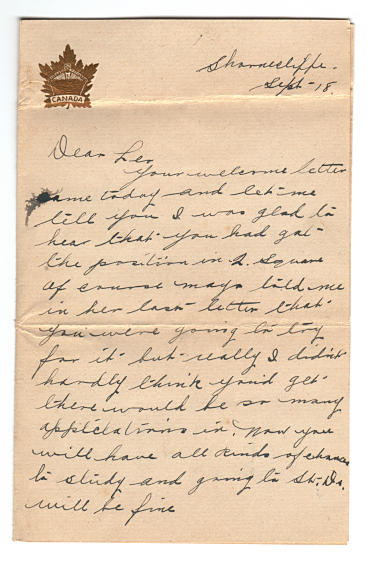 CANADA
Shorncliffe.
Sept-18.
Dear Les
Your welcome letter
came today and let me
tell you I was glad to
hear that you had got
the position in N. Square
of course mays told me
in her last letter that
you were going to try
for it but really I didn't
hardly think you'd get
there would be so many
applictations in. Now you
will have all kinds of chances
to study and going to St. Ds.
will be fine